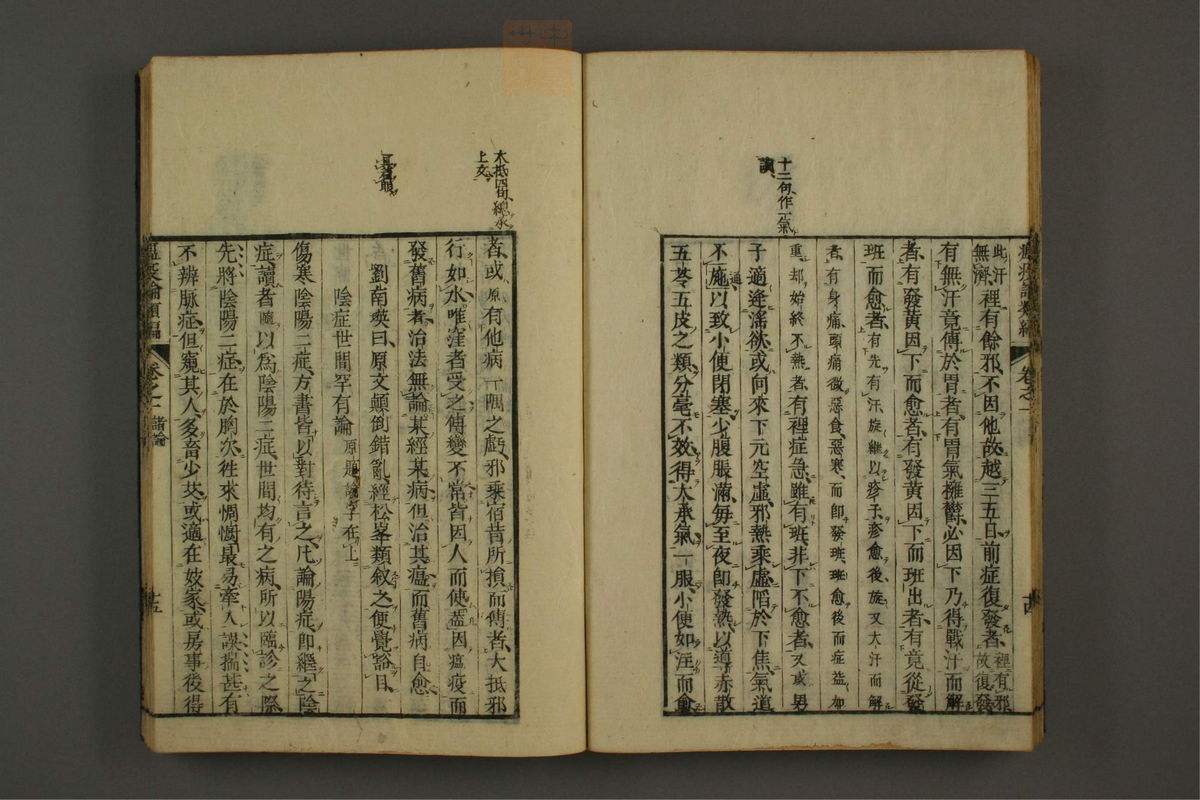 十二句作元氣
此汗
無濟、裡有餘邪、不因他故、越三五日前症復發者、裡有邪
故復發
有無汗竟傳於胃者、有胃氣擁鬱、必因下乃得戰汗而解
者、有發黃因下而愈者、有發黃因下而班出者、有竟從發
班而愈者、有先有汗、旋繼以疹子、疹愈後、旋又大汗而解
者、有身痛頭痛微惡食、惡寒、而即發班、班愈後而症益加
重、却始終不熱者、有裡症急、雖有班、非下不愈者、又或男
子適逢淫欲、或向來下元空虛、邪熱乘虛陷於下焦、氣道
不施、以致小便閉塞、少腹脹滿、毎至夜即發熱、以導赤散
五苓五皮之類、分毫不效、得大承氣一服、小便如注而愈
大抵四句、總承
上文
者、或原有他病一隅之虧、邪乘宿昔所損而傳者、大抵邪
行如水、唯窪者受之、傳變不常、皆因人而使、蓋因瘟疫而
發舊病者、治法無論某經某病、但治其瘟而舊病自愈
劉南瑛曰、原文顛倒錯亂、經松峯類敘之、便覺豁目、
陰症世間罕有論
傷寒陰陽二症、方書皆以對待言之、凡論陽症、即繼之陰
症、讀者臨以為陰陽二症、世間均有之病、所以臨診之際、
先將陰陽二症、在於胸次、徃來惆悵、最易牽入誤揣、甚有
不辨脉症、但窺其人多畜少艾、或適在妓家、或房事後得
瘟疫論類編
卷之一
諸論
十五
卷之一
十四